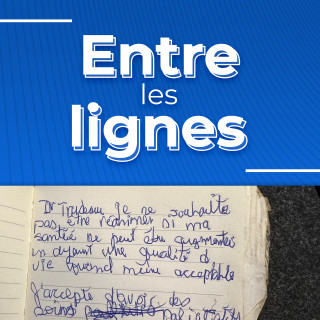 Entre
les
lignes
Dr Trudeau je ne souhaite
pas être réanimer si ma
santée ne peut être augmentés
in ayant une qualité d
vie quand meme acceptable
J'accepte d'avoir des
soins palliatifs